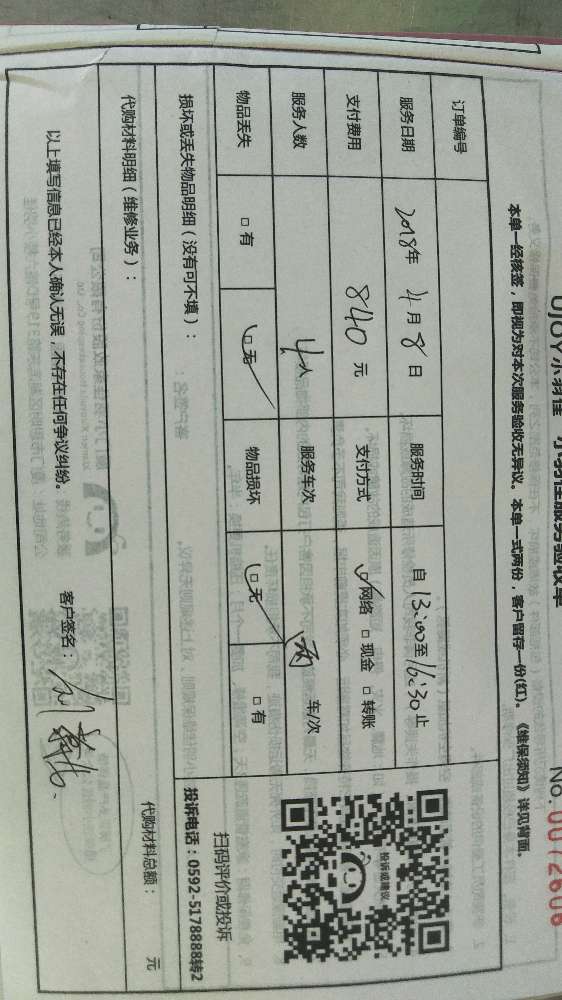 UJOY小羽佳 小羽佳服务验收单
No. 0072606
本单一经核签，即视为对本次服务验收无异议。本单一式两份，客户留存一份(红)。《维保须知》详见背面。
订单编号
服务日期 2018年 4月 8日 服务时间 自 13:00至 16:30止
支付费用 840 元 支付方式 ☑网络 □现金 □转账
服务人数 4人 服务车次 两 车/次
物品丢失 □有 ☑无 物品损坏 ☑无 □有
投诉或建议
扫码评价或投诉
投诉电话：0592-5178888转2
损坏或丢失物品明细（没有可不填）：
代购材料明细（维修业务）：
代购材料总额： 元
以上填写信息已经本人确认无误，不存在任何争议纠纷。 客户签名：